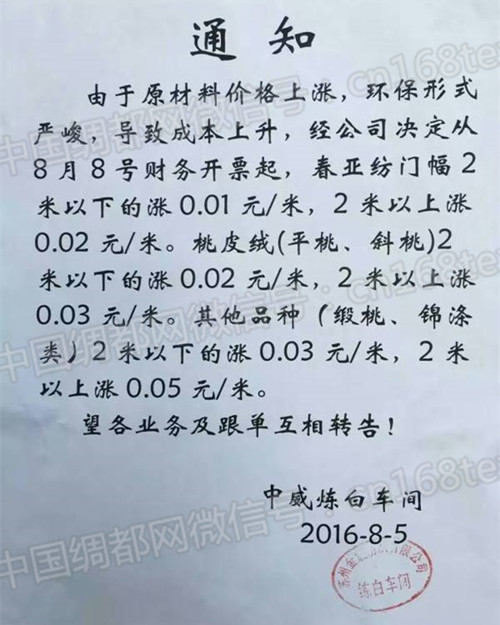 通 知
由于原材料价格上涨，环保形式
严峻，导致成本上升，经公司决定从
8月8号财务开票起，春亚纺门幅2
米以下的涨0.01元/米，2米以上涨
0.02元/米。桃皮绒(平桃、斜桃)2
米以下的涨0.02元/米，2米以上涨
0.03元/米。其他品种（缎桃、锦涤
类）2米以下的涨0.03元/米，2米
以上涨0.05元/米。
望各业务及跟单互相转告！
中威炼白车间
2016-8-5
苏州金 有限公司
炼白车间
中国绸都网微信号：cn168tex
中国绸都网微信号：cn168tex
中国绸都网微信号：cn168tex